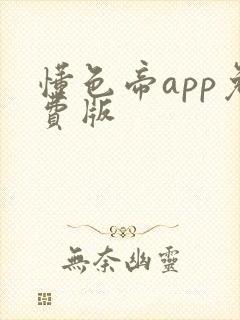 懂色帝app免
費版
無奈幽靈